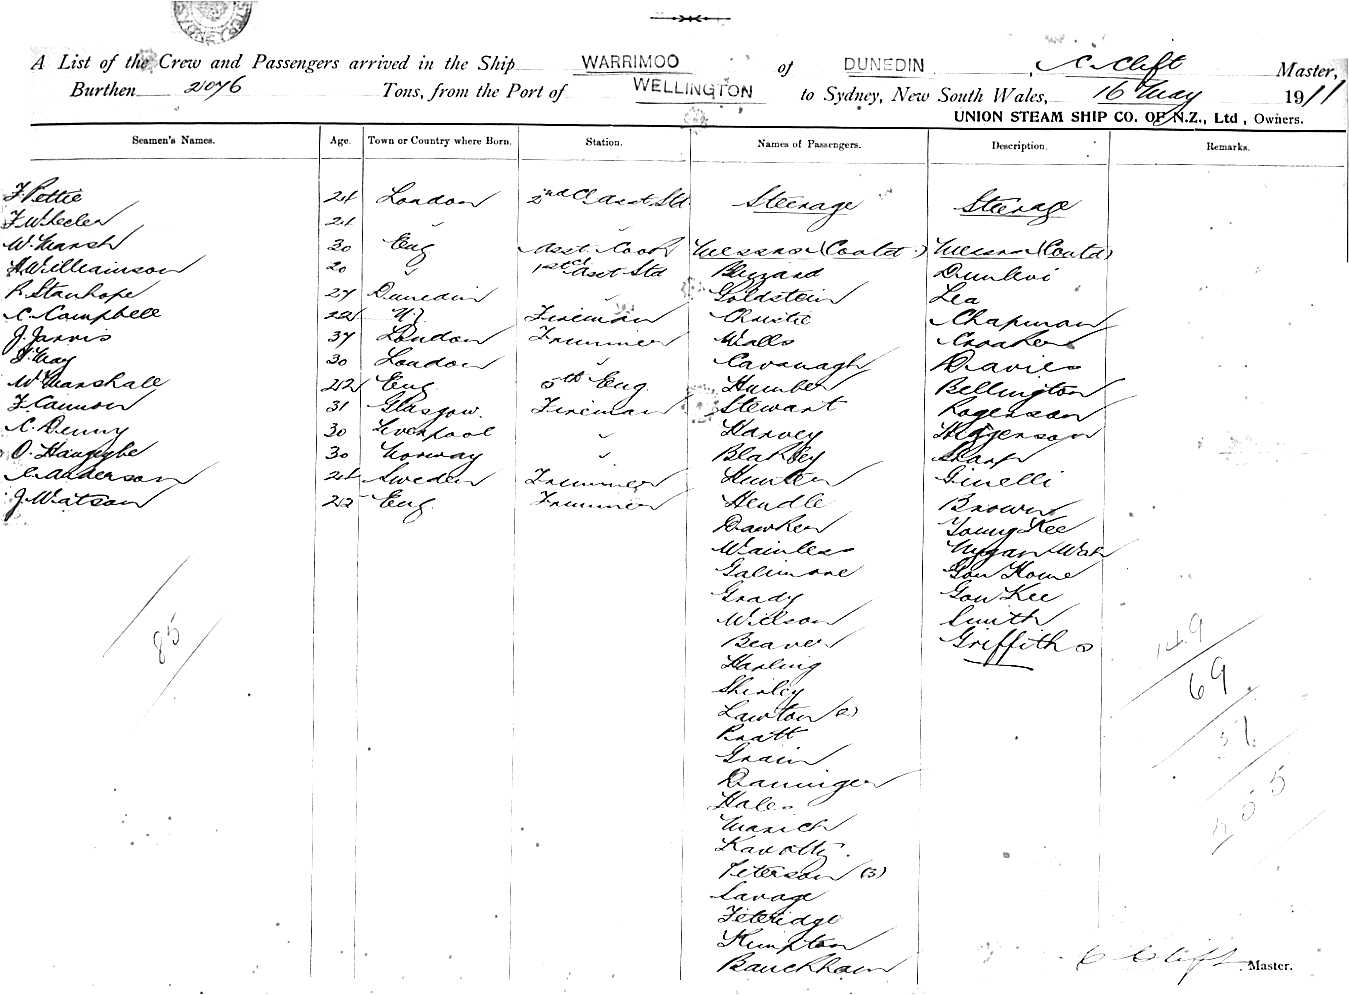 A List of the Crew and Passengers arrived in the Ship WARRIMOO of DUNEDIN, C. Clift Master,
Burthen 2076 Tons, from the Port of WELLINGTON to Sydney, New South Wales, 16 May 1911
UNION STEAM SHIP CO. OF N.Z., Ltd, Owners.
Seamen's Names. Age. Town or Country where Born. Station. Names of Passengers. Description. Remarks.
F. Pettie 24 London 2nd Cl Asst Std. Steerage Steerage
F. Wheeler 21 "
W. Marsh 30 Eng Asst. Cook Messrs (Contd.) Messrs (Contd)
H. Williamson 20 " 1st Cl Asst Std Blizzard Dunlevi
R. Stanhope 27 Dunedin " Goldstein Lea
C. Campbell 22 N.Z Fireman Christie Chapman
J. Jarvis 37 London Trimmer Walls Croaker
F. May 30 London " Cavanagh Davies
W. Marshall 22 Eng 5th Eng. Humber Bellington
F. Cannon 31 Glasgow. Fireman Stewart Rogerson
C. Denny 30 Liverpool " Harvey Higgerson
30 Norway " Blakley Sharp
C. Anderson 24 Sweden Trimmer Hunter Ginelli
J. Watson 22 Eng. Trimmer Hendle Brown
Dawken Young Kee
Wainless
Galimore Gow Howe
Grady Gow Kee
Willson Smith
Beaver Griffiths
Harling
Shirley
Lawton (2)
Pratt
Grain
Danninger
Hales
Marich
Peterson (3)
Savage
Feteridge
Kimpton
Bauckham
85
149
69
37
255
C Clift Master.